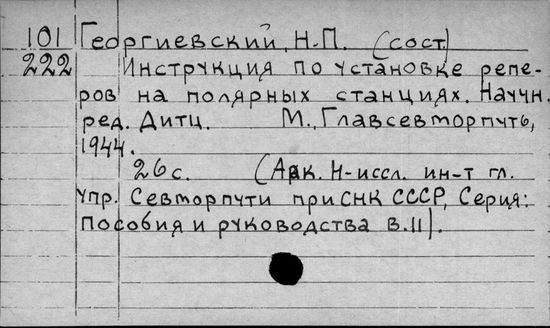 101 Георгиевский, Н.П. (сост)
222 Инструкция по установке репе-
ров на полярных станциях. Научн.
ред. Дитц. М., Главсевморпуть,
1944.
26 с. (Арк. Н-иссл. ин-т гл.
упр. Севморпути при СНК СССР, Серия:
Пособия и руководства в. 11).